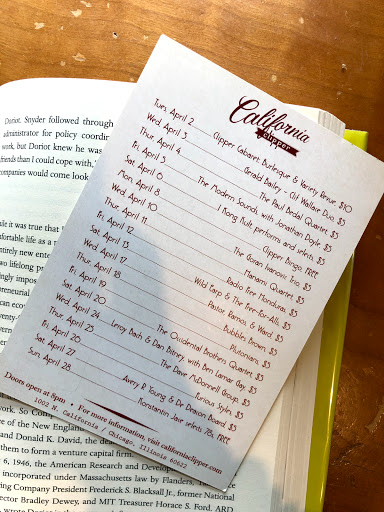 California
Clipper
Tues, April 2 Clipper Cabaret, Burlesque & Variety Revue $10
Wed, April 3 Gerald Bailey - Clif Wallace Duo, $5
Thur, April 4 The Paul Bedal Quartet, $5
Fri, April 5 The Modern Sound, with Jonathan Doyle, $5
Sat, April 6 performs and selects, $5
Mon, April 8 Clipper Bingo, FREE
Wed, April 10 The Goran Ivanovic Trio, $5
Thur, April 11 Manami Quartet, $5
Fri, April 12 Radio Free Honduras, $5
Sat, April 13 Wild Earp & The Free-for-Alls, $5
Wed, April 17 Pastor Ramos & Ward, $5
Thur, April 18 Bubbles Brown, $5
Fri, April 19 Plutonians, $5
Sat, April 20 The Occidental Brothers Quartet, $5
Wed, April 24 Leroy Bach & Dan Bitney, with Ben Lamar Gay, $5
Thur, April 25 The Dave McDonnell Group, $5
Fri, April 26 Furious Styles, $5
Sat, April 27 Avery R Young & De Deacon Board, $5
Sun, April 28 Konstantin Jace selects 78s, FREE
Doors open at 8pm • For more information, visit californiaclipper.com
1002 N. California / Chicago, Illinois 60622
Doriot. Snyder followed through
administrator for policy coordin
work, but Doriot knew he was
friends than I could cope with,"
companies would come lookin
while it was true that
comfortable life as a
entirely new enter
two lifelong pr
ingly impos
preneurial
can eco
vent
work. So Co
of the New Englan
and Donald K. David, the dea
them to form a venture capital firm.
6, 1946, the American Research and Developme
incorporated under Massachusetts law by Flanders,
ing Company President Frederick S. Blacksall Jr., former National
ector Bradley Dewey, and MIT Treasurer Horace S. Ford. ARD